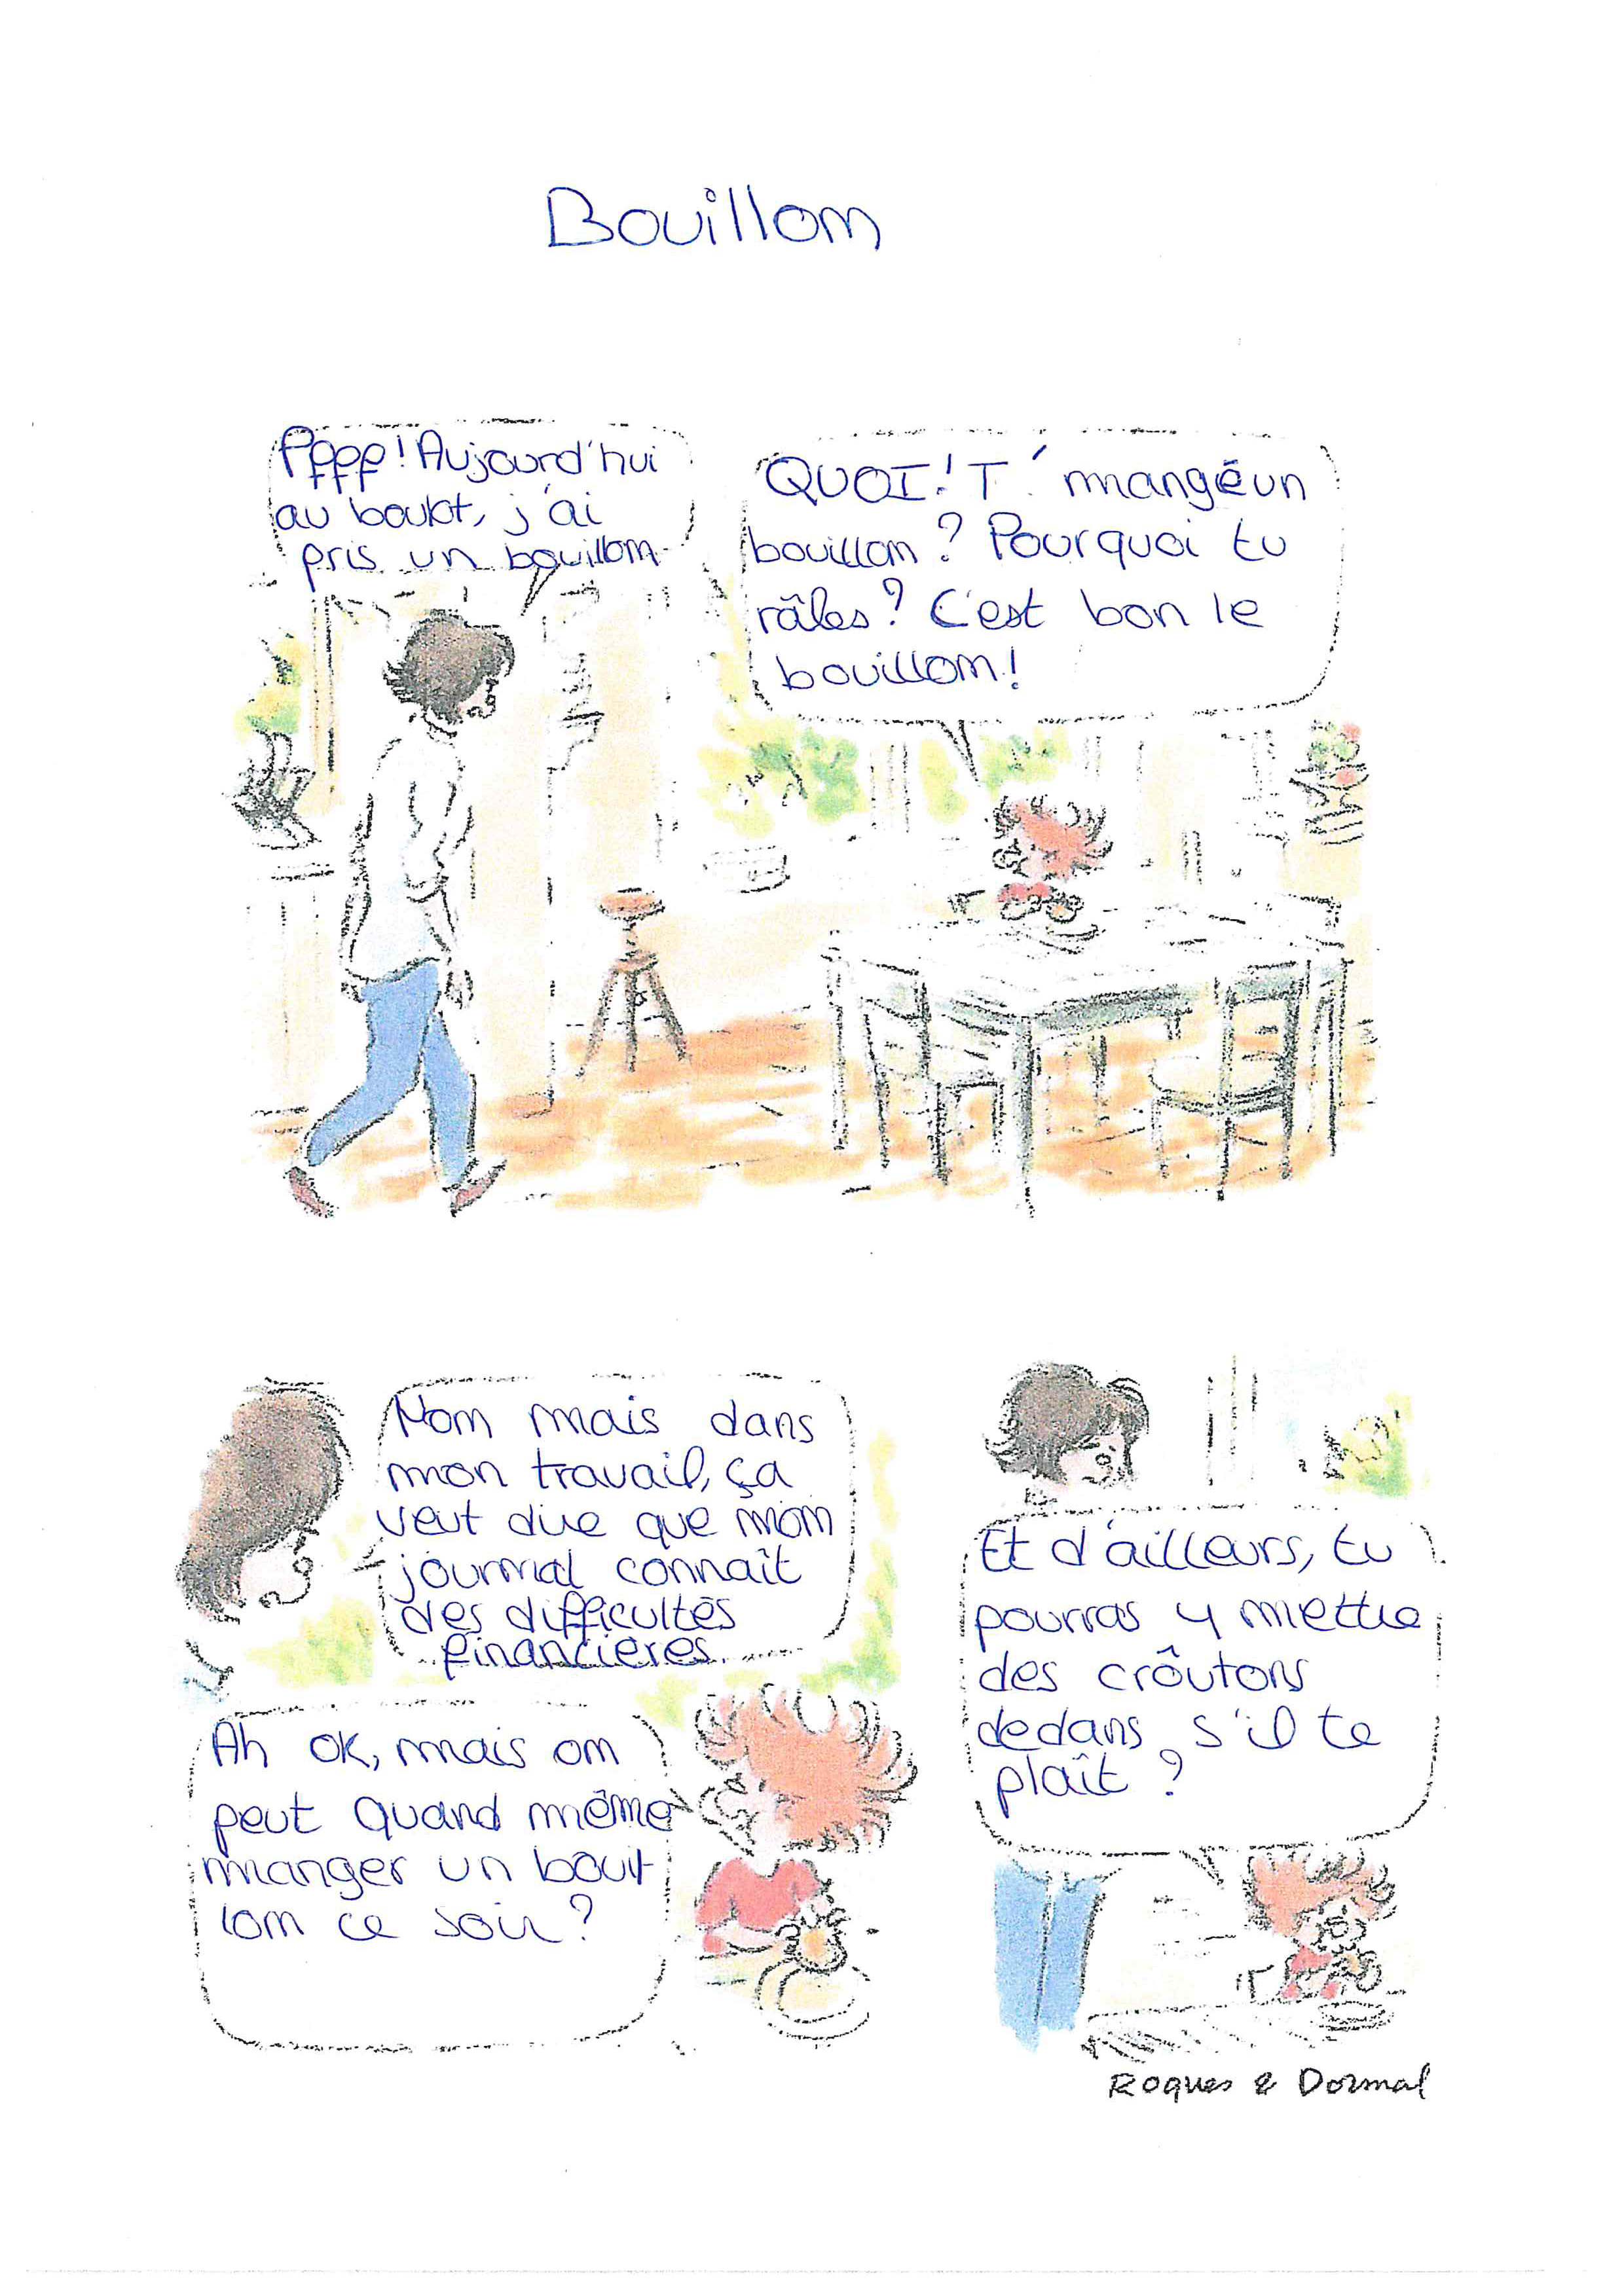 Bouillon
Pffff! Aujourd'hui
au boulot, j'ai
pris un bouillon
QUOI! T' mangé un
bouillon? Pourquoi tu
râles? C'est bon le
bouillon!
Non mais dans
mon travail, ça
veut dire que mon
journal connaît
des difficultés
financières
Ah ok, mais on
peut quand même
manger un bouil
lon ce soir?
Et d'ailleurs, tu
pourras y mettre
des croûtons
dedans s'il te
plaît?
Roques & Dormal